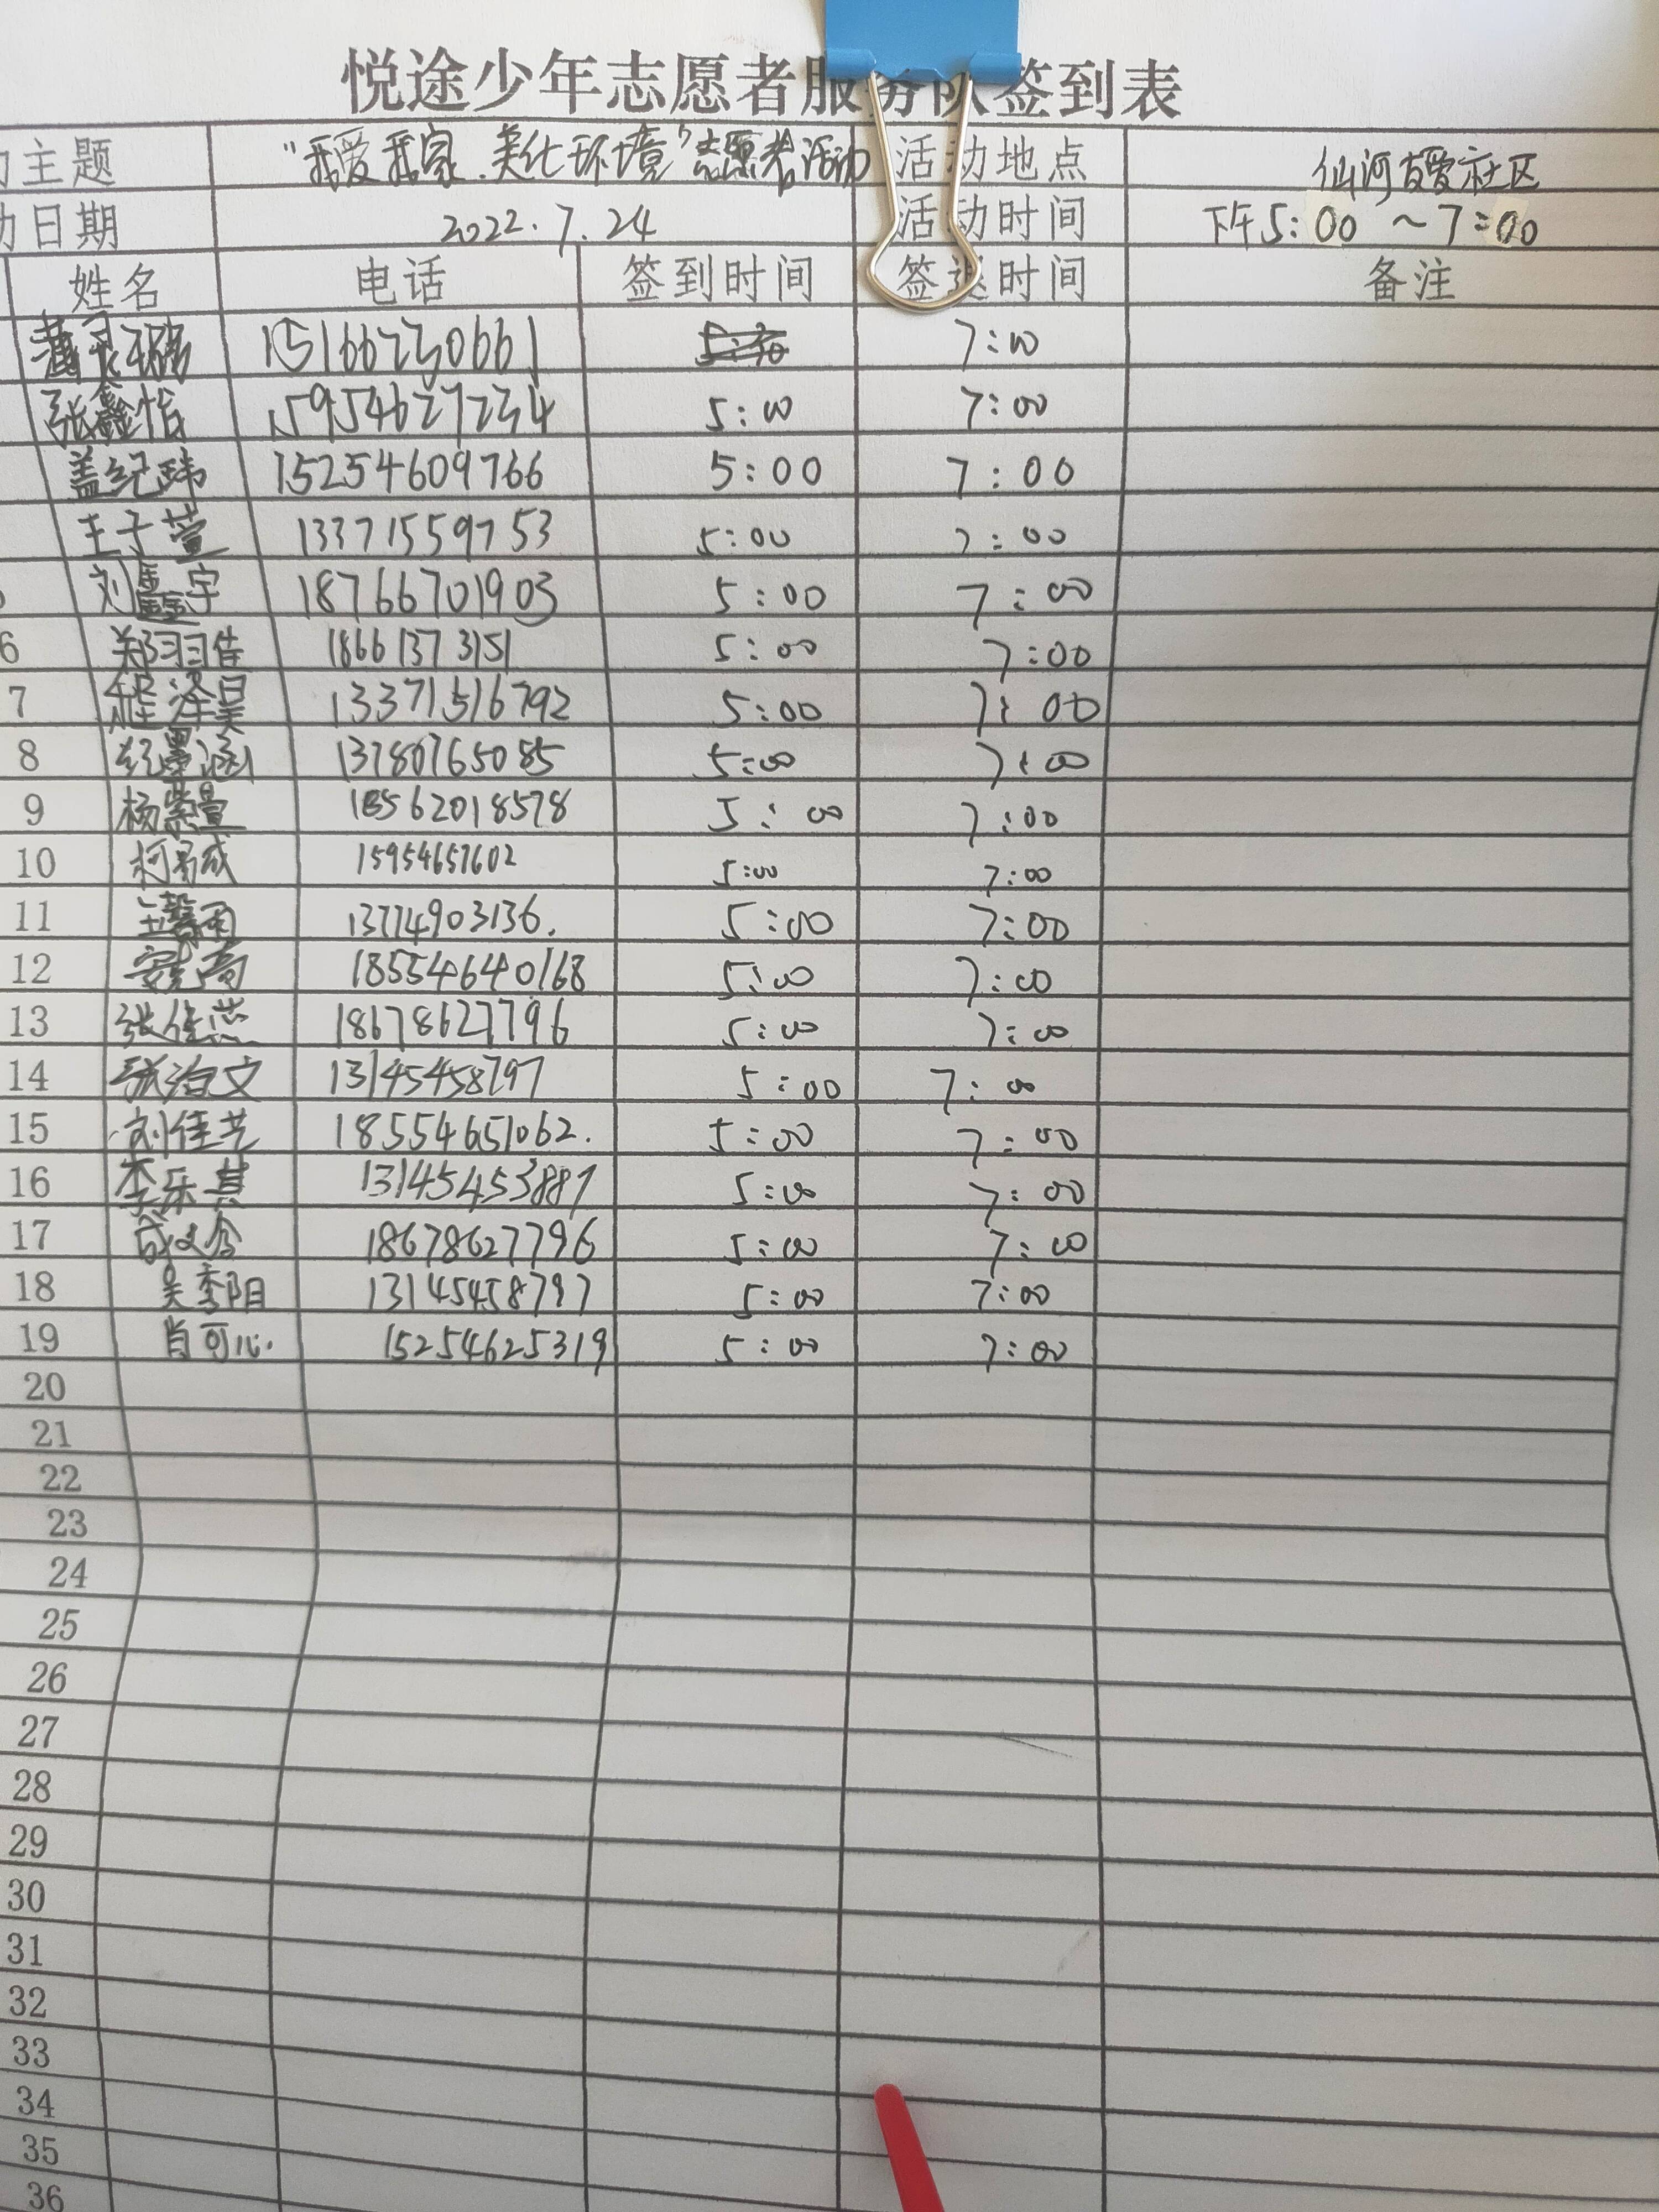 悦途少年志愿者服务队签到表
主题 "我爱我家.美化环境"志愿者活动 活动地点 仙河 社区
日期 2022.7.24 活动时间 下午5:00 ~ 7:00
姓名 电话 签到时间 签退时间 备注
15166230661 7:00
张鑫怡 15954627234 5:00 7:00
盖纪玮 15254609766 5:00 7:00
王子萱 13371559753 5:00 7:00
刘鑫宇 18766701903 5:00 7:00
6 郑羽佳 18661373151 5:00 7:00
7 程泽昊 13371516792 5:00 7:00
8 纪墨涵 13780765085 5:00 7:00
9 杨紫萱 18562018578 5:00 7:00
10 柯易成 15954657602 5:00 7:00
11 王馨雨 13774903136. 5:00 7:00
12 18554640168 5:00 7:00
13 张佳蕊 18678627796 5:00 7:00
14 张洺文 13145458797 5:00 7:00
15 刘佳艺 18554651062. 5:00 7:00
16 李乐其 13145453887 5:00 7:00
17 18678627796 5:00 7:00
18 吴季阳 13145458797 5:00 7:00
19 肖可心. 15254625319 5:00 7:00
20
21
22
23
24
25
26
27
28
29
30
31
32
33
34
35
36